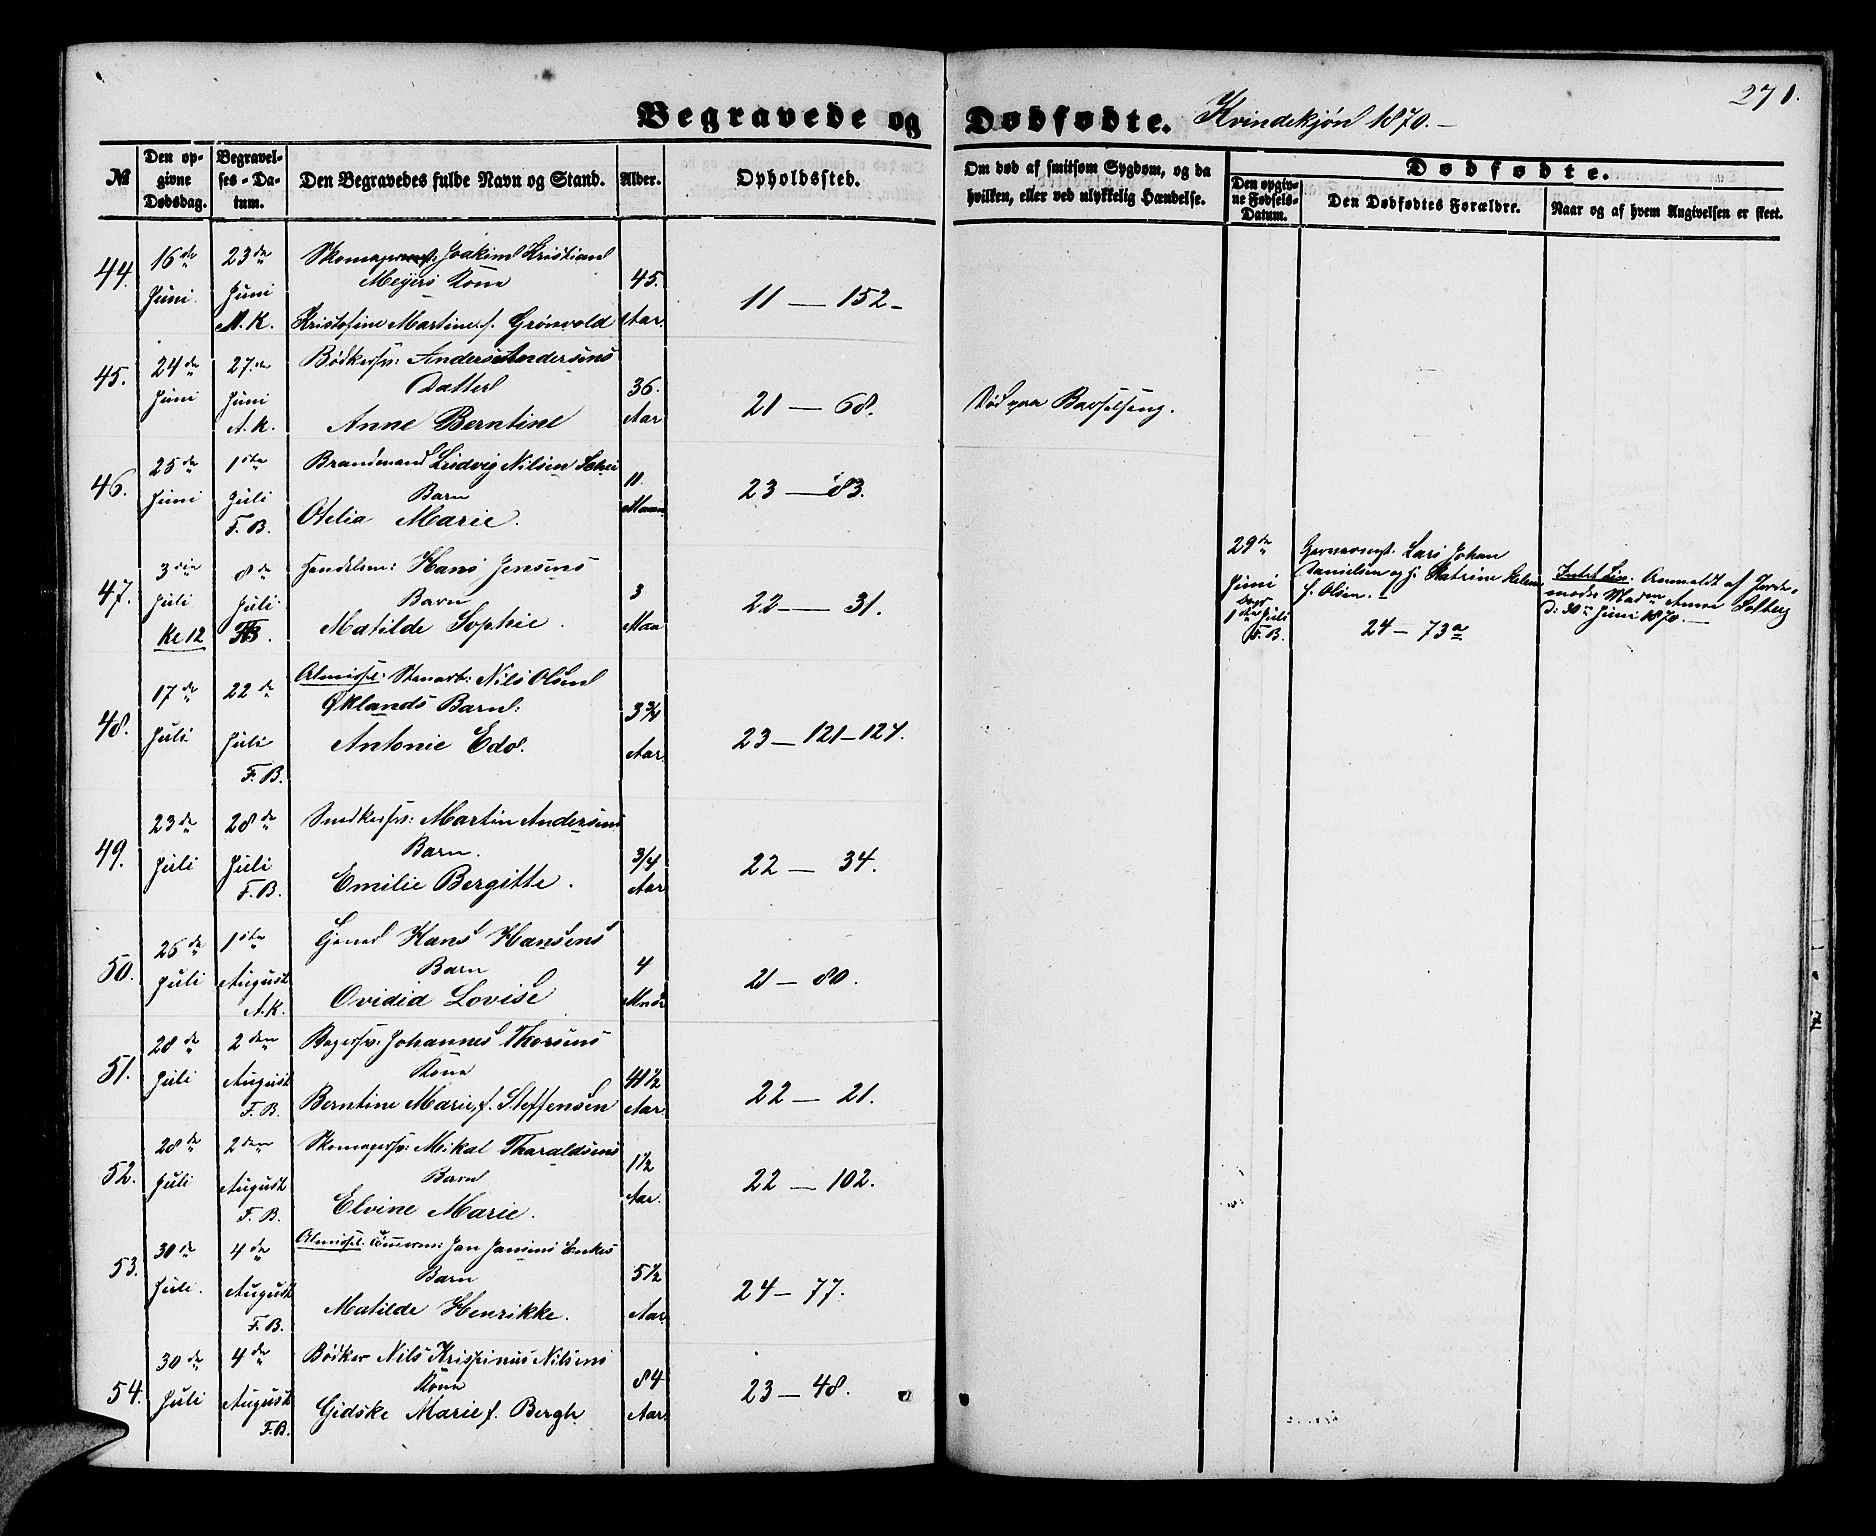 Begravede og Dødfødte. Kvindekjøn 1870.-
271.
№
Den opgivne Dødsdag.
Begravelses-Datum.
Den Begravedes fulde Navn og Stand.
Alder.
Opholdssted.
Om død af smitsom Sygdom, og da hvilken, eller ved ulykkelig Hændelse.
Dødfødte.
Den opgivne Fødsels-Datum.
Den Dødfødtes Forældre.
Naar og af hvem Angivelsen er skeet.
44.
16de Juni.
23de Juni
M. K.
Joakim Kristian
Meyers Kone
Kristofine Martine f. Grønvold
45. Aar.
11 — 152 -
45.
24de Juni
27de Juni
A. K.
Bødkersv: Anders Andersens
Datter
Anne Berntine
36. Aar
21 — 68.
Død paa Barselseng.
46.
25de Juni
1ste Juli
F. B.
Brandmand Ludvig Nilsen
Barn
Otelia Marie.
11.
23 — 83.
47.
3die Juli
Kl 12
8de Juli
F. B.
Handelsm: Hans Jensens
Barn
Matilde Sophie.
3
22 — 31.
29de Juni
1ste Juli
F. B.
Garversvst. Lars Johan
Danielsen og H. Katrine Helene
f. Olsen. -
24 - 73a
Intet Liv: Anmeldt af Jorde-
moder Madm Anne Solberg
d: 30te Juni 1870. -
48.
17de Juli
22de Juli
F. B.
Almissel: Stenarb: Nils Olsen
Øklands Barn:
Antonie Edo.
3 3/4 Aar
23 — 121-127.
49.
23de Juli
28de Juli
F. B.
Snedkersv: Martin Andersens
Barn.
Emilie Bergitte.
3/4 Aar
22 — 34.
50.
26de Juli
1ste August
A. K.
Hans Hansens
Barn
Ovidia Lovise
4
21 - 80.
51.
28de Juli
2den August
F. B.
Bagersv: Johannes Thorsens
Kone
Berntine Marie, f. Steffensen
41 1/2 Aar.
22 — 21.
52.
28de Juli
2den August
F. B.
Skomagersv: Mikal Tharaldsens
Barn
Elvine Marie.
1 1/2 Aar.
22 — 102.
53.
30te Juli.
4de August
F. B.
Almissel. Tømmerm: Jan Jansens Enkes
Barn
Matilde Henrikke.
5 1/2 Aar
24 - 77.
54.
30te Juli
4de August
F. B.
Bødker Nils Krispinus Nilsens
Kone
Gidske Marie f. Bergh
84 Aar.
23 - 48.